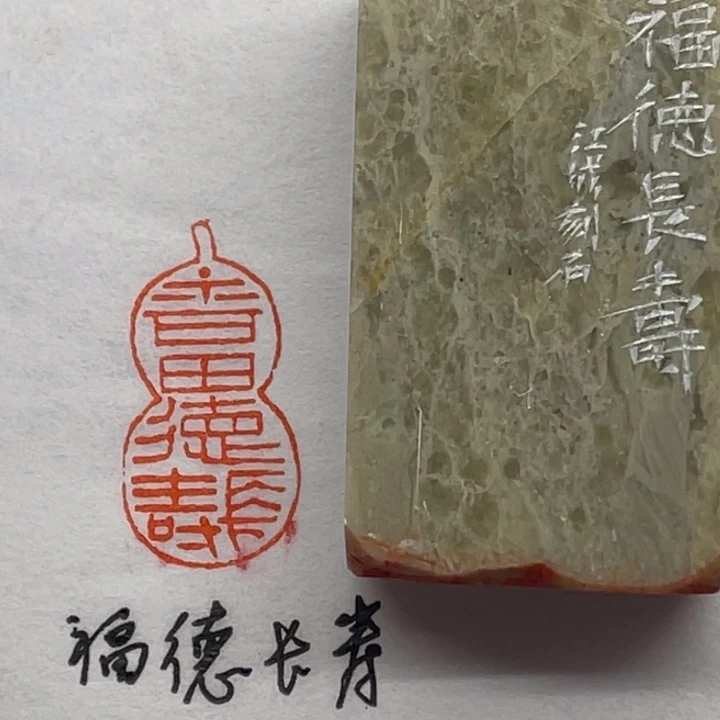 福德長壽
江成刻石
福德長壽
福德长寿